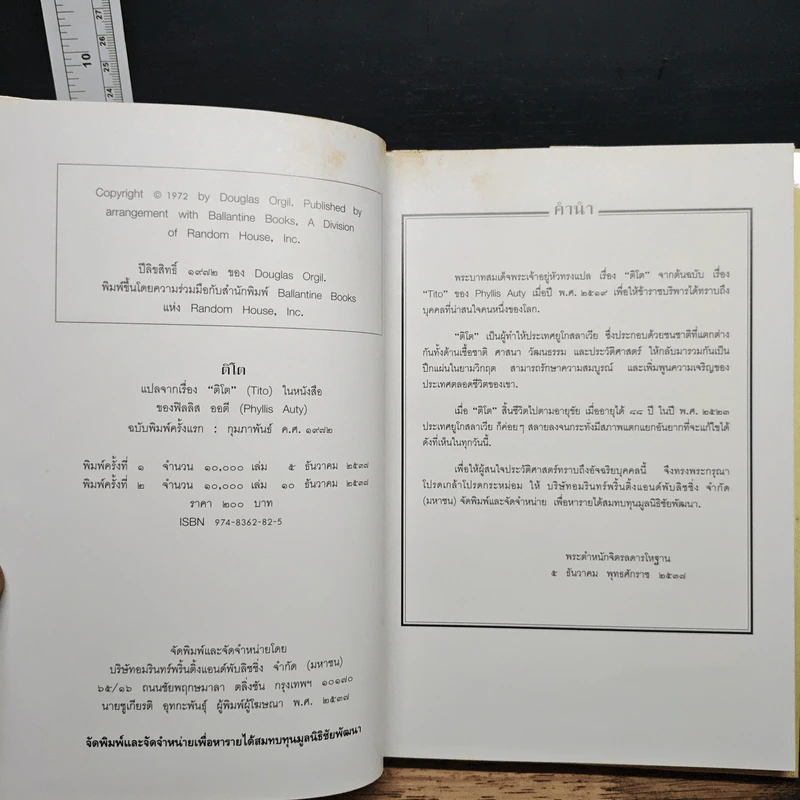 27
26
10
25
24
Copyright © 1972 by Douglas Orgil. Published by
arrangement with Ballantine Books, A Division
of Random House, Inc.
ปีลิขสิทธิ์ ๑๙๗๒ ของ Douglas Orgil.
พิมพ์ขึ้นโดยความร่วมมือกับสำนักพิมพ์ Ballantine Books
แห่ง Random House, Inc.
ติโต
แปลจากเรื่อง “ติโต” (Tito) ในหนังสือ
ของฟิลลิส ออตี (Phyllis Auty)
ฉบับพิมพ์ครั้งแรก : กุมภาพันธ์ ค.ศ. ๑๙๗๒
พิมพ์ครั้งที่ ๑ จำนวน ๑๐,๐๐๐ เล่ม ๕ ธันวาคม ๒๕๓๗
พิมพ์ครั้งที่ ๒ จำนวน ๑๐,๐๐๐ เล่ม ๑๐ ธันวาคม ๒๕๓๗
ราคา ๒๐๐ บาท
ISBN 974-8362-82-5
จัดพิมพ์และจัดจำหน่ายโดย
บริษัทอมรินทร์พริ้นติ้งแอนด์พับลิชชิ่ง จำกัด (มหาชน)
๖๕/๑๖ ถนนชัยพฤกษมาลา ตลิ่งชัน กรุงเทพฯ ๑๐๑๗๐
นายชูเกียรติ อุทกะพันธุ์ ผู้พิมพ์ผู้โฆษณา พ.ศ. ๒๕๓๗
จัดพิมพ์และจัดจำหน่ายเพื่อหารายได้สมทบทุนมูลนิธิชัยพัฒนา
คำนำ
พระบาทสมเด็จพระเจ้าอยู่หัวทรงแปล เรื่อง “ติโต” จากต้นฉบับ เรื่อง
“Tito” ของ Phyllis Auty เมื่อปี พ.ศ. ๒๕๑๙ เพื่อให้ข้าราชบริพารได้ทราบถึง
บุคคลที่น่าสนใจคนหนึ่งของโลก.
“ติโต” เป็นผู้ทำให้ประเทศยูโกสลาเวีย ซึ่งประกอบด้วยชนชาติที่แตกต่าง
กันทั้งด้านเชื้อชาติ ศาสนา วัฒนธรรม และประวัติศาสตร์ ให้กลับมารวมกันเป็น
ปึกแผ่นในยามวิกฤต สามารถรักษาความสมบูรณ์ และเพิ่มพูนความเจริญของ
ประเทศตลอดชีวิตของเขา.
เมื่อ “ติโต” สิ้นชีวิตไปตามอายุขัย เมื่ออายุได้ ๘๘ ปี ในปี พ.ศ. ๒๕๒๓
ประเทศยูโกสลาเวีย ก็ค่อยๆ สลายลงจนกระทั่งมีสภาพแตกแยกอันยากที่จะแก้ไขได้
ดังที่เห็นในทุกวันนี้.
เพื่อให้ผู้สนใจประวัติศาสตร์ทราบถึงอัจฉริยบุคคลนี้ จึงทรงพระกรุณา
โปรดเกล้าโปรดกระหม่อม ให้ บริษัทอมรินทร์พริ้นติ้งแอนด์พับลิชชิ่ง จำกัด
(มหาชน) จัดพิมพ์และจัดจำหน่าย เพื่อหารายได้สมทบทุนมูลนิธิชัยพัฒนา.
พระตำหนักจิตรลดารโหฐาน
๕ ธันวาคม พุทธศักราช ๒๕๓๗